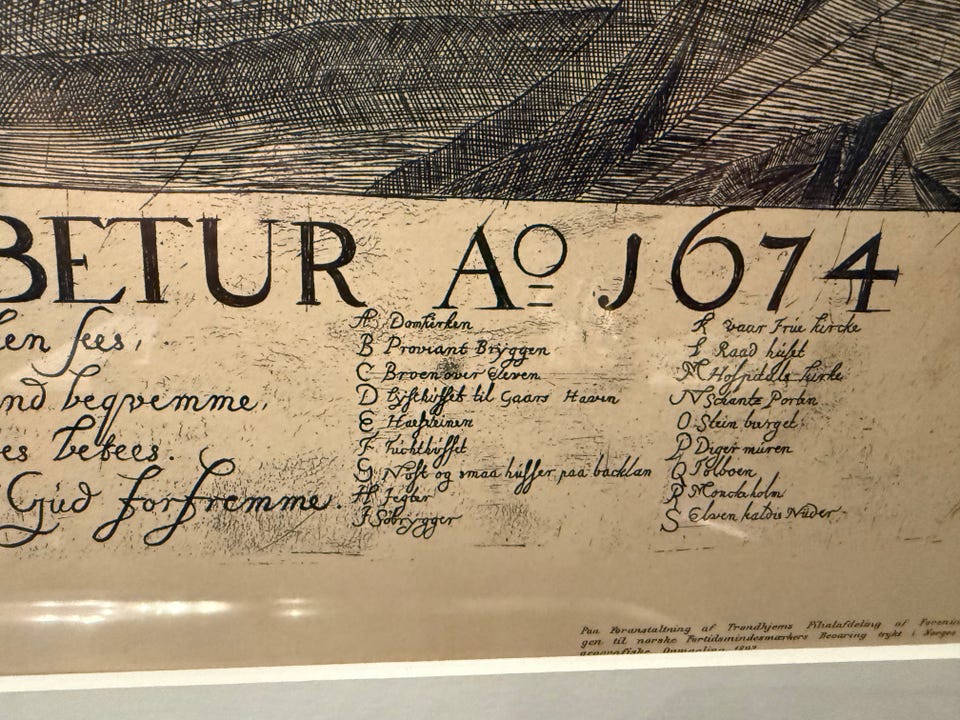 BETUR Aº 1674
len sees,
nd beqvemme,
es betees.
Gud forfremme.
A Domkirken
B Proviant Bryggen
C Broen over Eleven
D Lysthusset til Gaars Haven
E
F Tuchthusset
G Nøst og smaa husser paa backlan
H Jegter
J Søbrygger
K vaar Frue kircke
L Raad huset
M Hospitals kirke
N Scantz Porten
O Stein berget
P Diger muren
Q Tolboen
R Monckholm
S Elven kaldis Nider
Paa Foranstaltning af Trondhjems Filialafdeling af Forenin
gen til norske Fortidsmindesmærkers Bevaring trykt i Norges
geografiske Opmaaling 1897